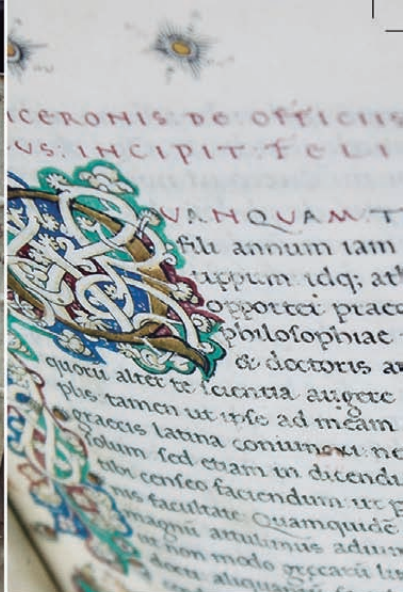 ICERONIS DE OFFICIIS
US: INCIPIT: FELI
QUANQUAM: T
fili annum iam
ippum idq; ath
opportet praec
philosophiae
& doctoris au
quoru alter te scientia augere
plis tamen ut ipse ad meam
graecis latina coniunxi: ne
solum sed etiam in dicendi
tibi censeo faciendum: ut p
nis facultate Quamquidē
magnū attulimus adium
ut non modo grecarū
docti aliquantū